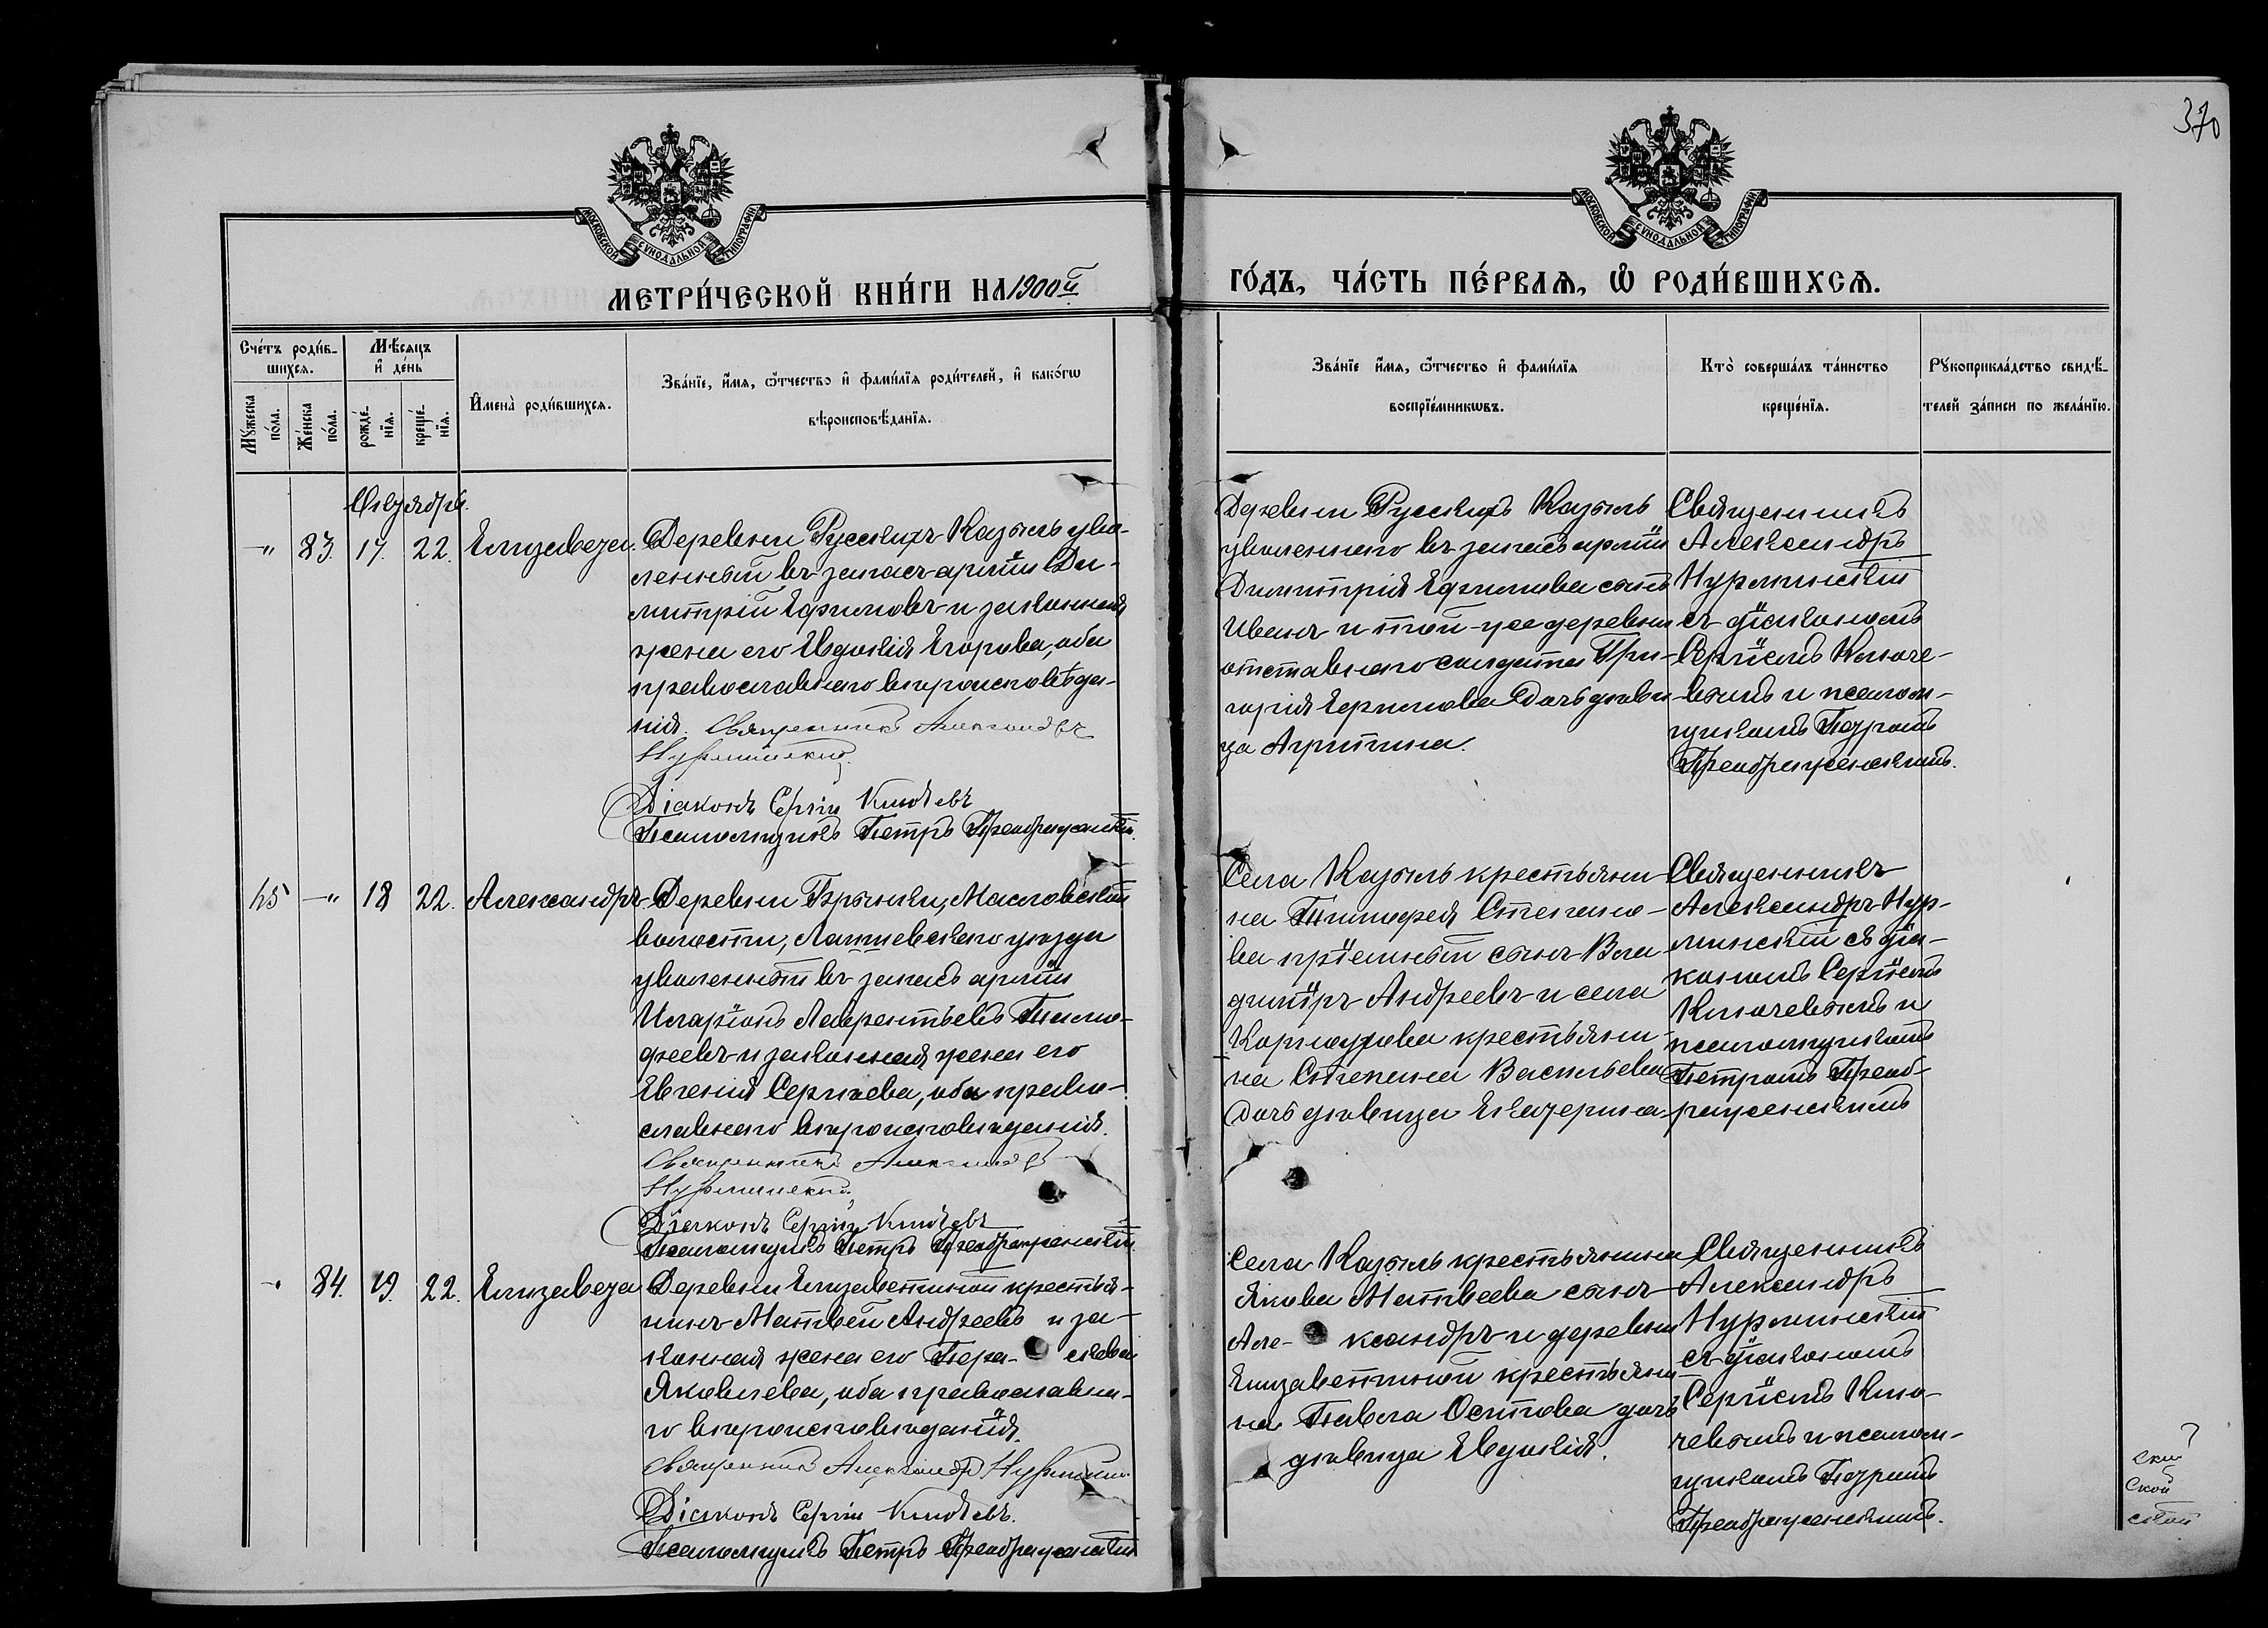 370
МОСКОВСКОЙ СѴНОДАЛЬНОЙ ТИПОГРАФІИ
МОСКОВСКОЙ СѴНОДАЛЬНОЙ ТИПОГРАФІИ
МЕТРИ́ЧЕСКОЙ КНИ́ГИ НА 1900й
ГО́ДЪ, ЧА́СТЬ ПЕ́РВАѦ, Ѿ РОДИ́ВШИХСѦ.
Сче́тъ роди́в-
шихсѧ.
Мѣ́сѧцъ
и҆ де́нь
Му́жеска
по́ла.
Же́нска
по́ла.
рожде́-
нїѧ.
креще́-
нїѧ.
И҆мена̀ роди́вшихсѧ.
Зва́нїе, и҆́мѧ, ѻ҆́тчество и҆ фами́лїѧ роди́телей, и҆ како́гѡ
вѣроисповѣ́данїѧ.
Зва́нїе и҆́мѧ, ѻ҆́тчество и҆ фами́лїѧ
воспрїе́мникѡвъ.
Кто̀ соверша́лъ та́инство
креще́нїѧ.
Рꙋкоприкла́дство свидѣ́-
телей за́писи по жела́нїю.
Октябрь.
-"- 83. 17. 22. Елизавета.
Деревни Русскихъ Казыль уво-
ленный въ запасъ арміи Ди-
митрій Ефимовъ и законная
жена его Евдокія Егорова, оба
православнаго вѣроисповѣда-
нія. Священникъ Александръ
Нурминскій
Діаконъ Сергій Ключевъ
Псаломщикъ Петръ Преображенскій.
Деревни Русскихъ Казыль
уволеннаго въ запасъ арміи
Димитрія Ефимова сынъ
Иванъ и той-же деревни
отставнаго солдата Гри-
горія Ефимова дочь дѣви-
ца Агрипина.
Священникъ
Александръ
Нурминскій
съ діакономъ
Сергіемъ Ключе-
вымъ и псалом-
щикомъ Петромъ
Преображенскимъ.
45 -"- 18 22. Александръ
Деревни Масловской
волости, Лаишевскаго уѣзда
уволенный въ запасъ арміи
Иларіонъ Лаврентьевъ Тимо-
феевъ и законная жена его
Евгенія Сергѣева, оба право-
славнаго вѣроисповѣданія.
Священникъ Александръ
Нурминскій
Діаконъ Сергій Ключевъ
Псаломщикъ Петръ Преображенскій.
Села Казыль крестьяни-
на Тимофея Степано-
ва пріемный сынъ Вла-
диміръ Андреевъ и села
крестьяни-
на Степана Васильева
дочь дѣвица Екатерина
Священникъ
Александръ Нур-
минскій съ діа-
кономъ Сергіемъ
Ключевымъ и
псаломщикомъ
Петромъ Преоб-
раженскимъ
-"- 84. 19. 22. Елизавета
Деревни Елизаветиной крестья-
нинъ Матвей Андреевъ и за-
конная жена его Пера- скева
Яковлева, оба православна-
го вѣроисповѣданія.
Священникъ Александръ Нурминскій
Діаконъ Сергій Ключевъ.
Псаломщикъ Петръ Преображенскій
Села Казыль крестьянина
Якова Матвеева сынъ
Але- ксандръ и деревни
Елизаветиной крестьяни-
на Павла Осипова дочь
дѣвица Евдокія.
Священникъ
Александръ
Нурминскій
съ діакономъ
Сергіемъ Клю-
чевымъ и псалом-
щикомъ Петромъ
Преображенскимъ.
ской